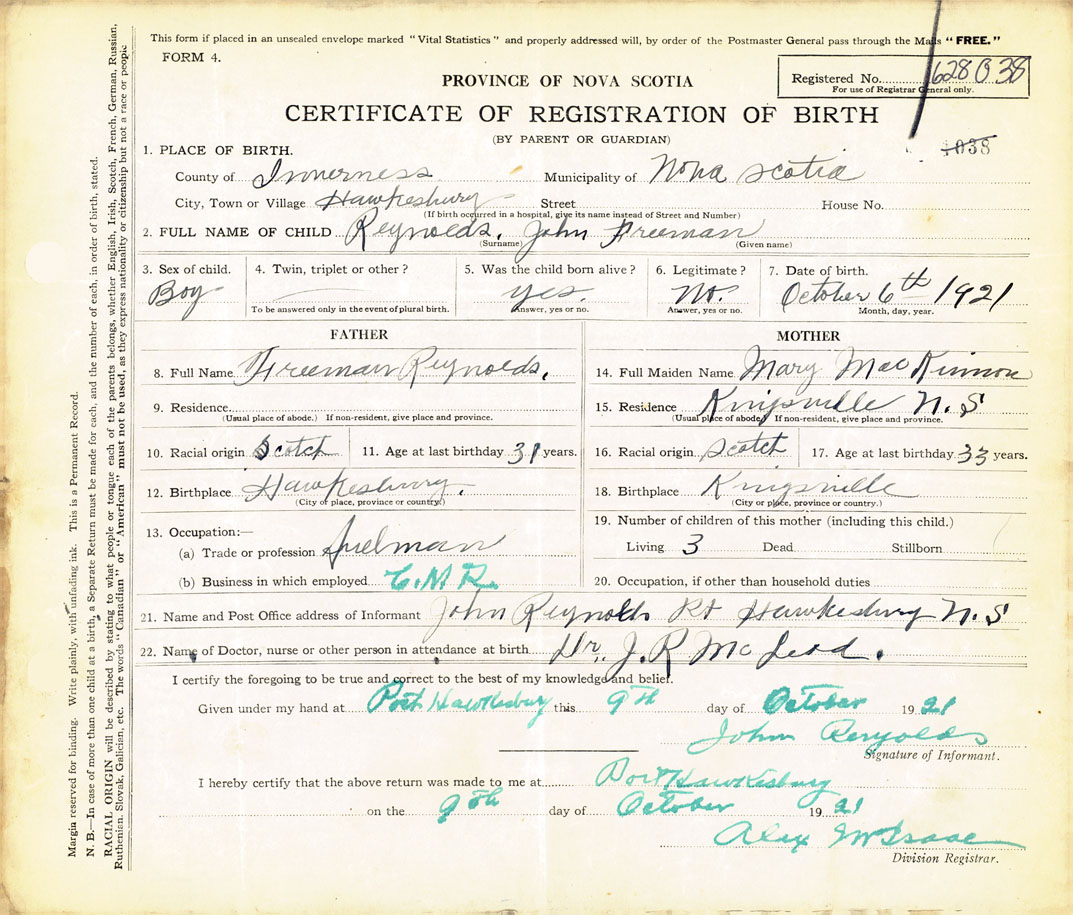 This form if placed in an unsealed envelope marked "Vital Statistics" and properly addressed will, by order of the Postmaster General pass through the Mails "FREE."
FORM 4.
PROVINCE OF NOVA SCOTIA
Registered No. 628038
For use of Registrar General only.
CERTIFICATE OF REGISTRATION OF BIRTH
(BY PARENT OR GUARDIAN)
1038
1. PLACE OF BIRTH.
County of Inverness Municipality of Nova Scotia
City, Town or Village Hawkesbury Street House No.
(If birth occurred in a hospital, give its name instead of Street and Number)
2. FULL NAME OF CHILD Reynolds, John Freeman
(Surname) (Given name)
3. Sex of child. 4. Twin, triplet or other? 5. Was the child born alive? 6. Legitimate? 7. Date of birth.
Boy yes. No. October 6th 1921
To be answered only in the event of plural birth. Answer, yes or no. Answer, yes or no. Month, day, year.
FATHER
8. Full Name Freeman Reynolds.
9. Residence.
(Usual place of abode.) If non-resident, give place and province.
10. Racial origin Scotch 11. Age at last birthday 31 years.
12. Birthplace Hawkesburry.
(City or place, province or country.)
13. Occupation:—
(a) Trade or profession
(b) Business in which employed C.N.R.
MOTHER
14. Full Maiden Name Mary MacKinnon
15. Residence Kingsville N.S
(Usual place of abode.) If non-resident, give place and province.
16. Racial origin Scotch 17. Age at last birthday 33 years.
18. Birthplace Kingsville
(City or place, province or country.)
19. Number of children of this mother (including this child.)
Living 3 Dead Stillborn
20. Occupation, if other than household duties
21. Name and Post Office address of Informant John Reynolds Pt Hawkesbury N.S
22. Name of Doctor, nurse or other person in attendance at birth Dr. J. R McLeod.
I certify the foregoing to be true and correct to the best of my knowledge and belief.
Given under my hand at Port Hawkesbury this 9th day of October 1921
John Renyolds
Signature of Informant.
I hereby certify that the above return was made to me at Port Hawkesbury
on the 9th day of October 1921
Alex McIsaac
Division Registrar.
Margin reserved for binding. Write plainly, with unfading ink. This is a Permanent Record.
N. B.—In case of more than one child at a birth, a Separate Return must be made for each, and the number of each, in order of birth, stated.
RACIAL ORIGIN will be described by stating to what people or tongue each of the parents belongs, whether English, Irish, Scotch, French, German, Russian,
Ruthenian, Slovak, Galician, etc. The words "Canadian" or "American" must not be used, as they express nationality or citizenship but not a race or people